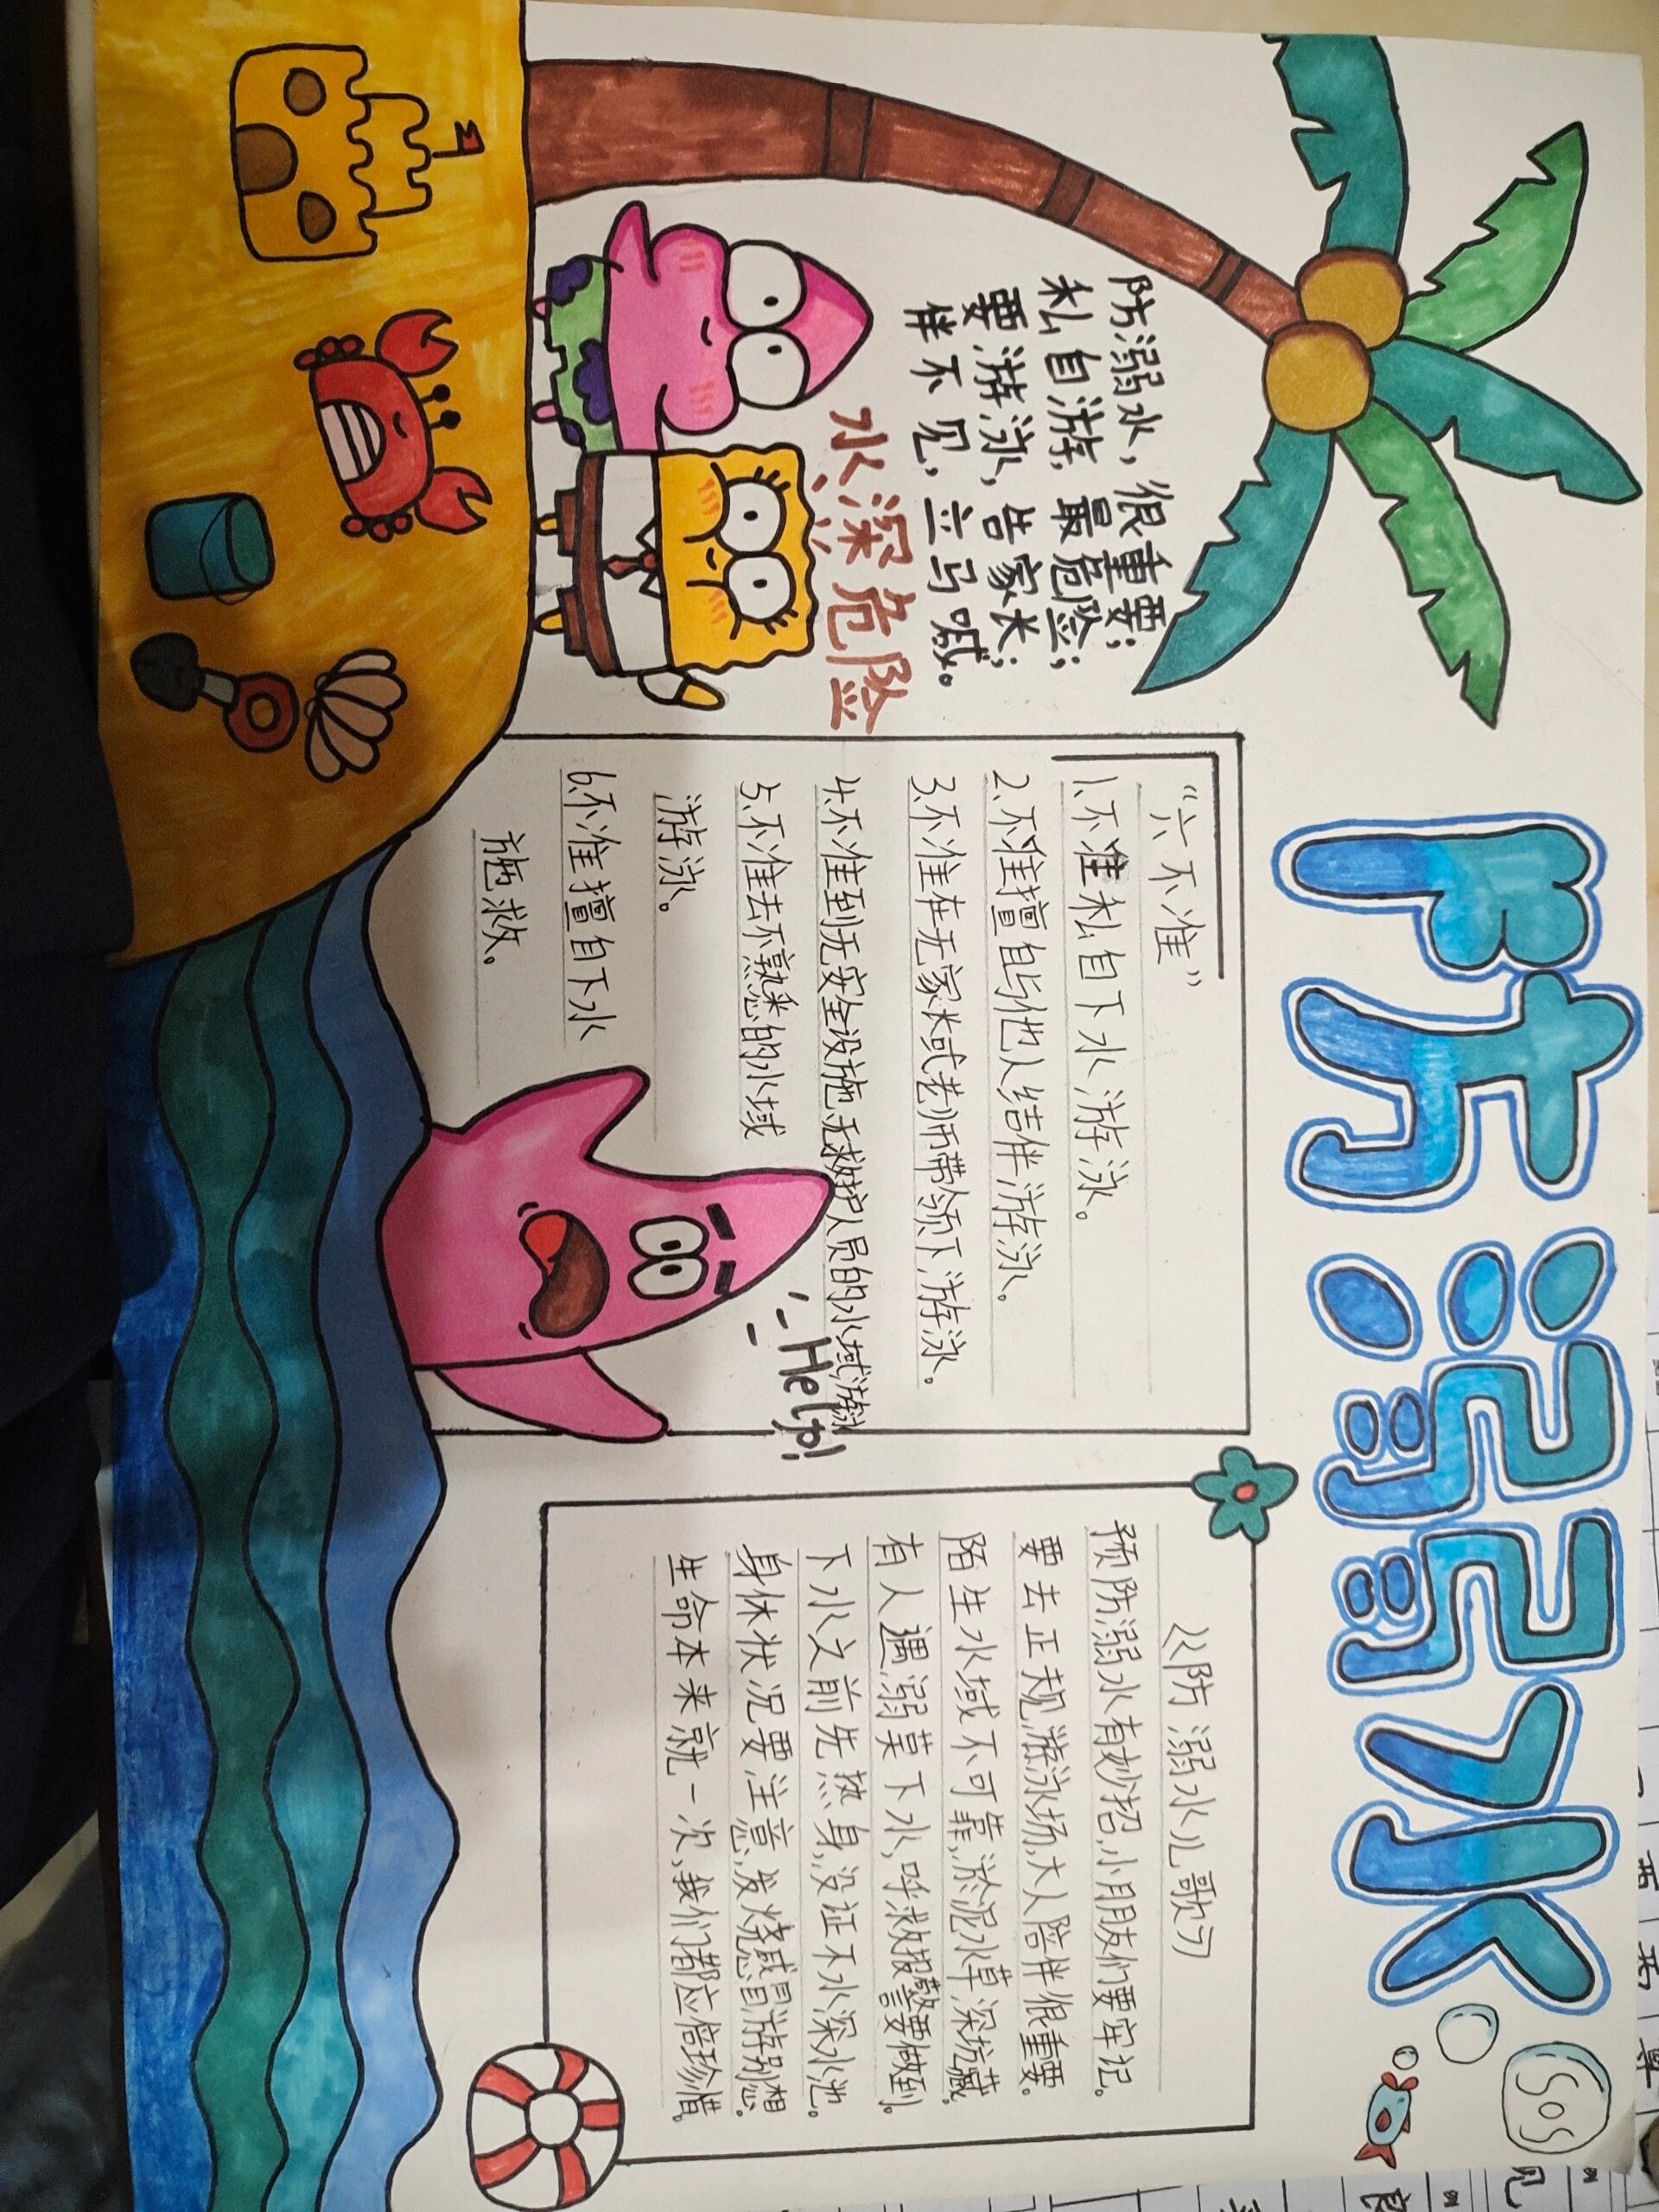 防溺水
SOS
防溺水，很重要；
私自游，最危险；
要游泳，告家长；
伴不见，立马喊。
水深危险
“六不准”
1.不准私自下水游泳。
2.不准擅自与他人结伴游泳。
3.不准在无家长或老师带领下游泳。
4.不准到无安全设施，无救护人员的水域游泳
5.不准去不熟悉的水域
游泳。
6.不准擅自下水
施救。
Help!
《防溺水儿歌》
预防溺水有妙招，小朋友们要牢记。
要去正规游泳场，大人陪伴很重要。
陌生水域不可靠，淤泥水草深坑藏。
有人遇溺莫下水，呼救报警要做到。
下水之前先热身，没证不水深水池。
身体状况要注意，发烧感冒游别想。
生命本来就一次，我们都应倍珍惜。